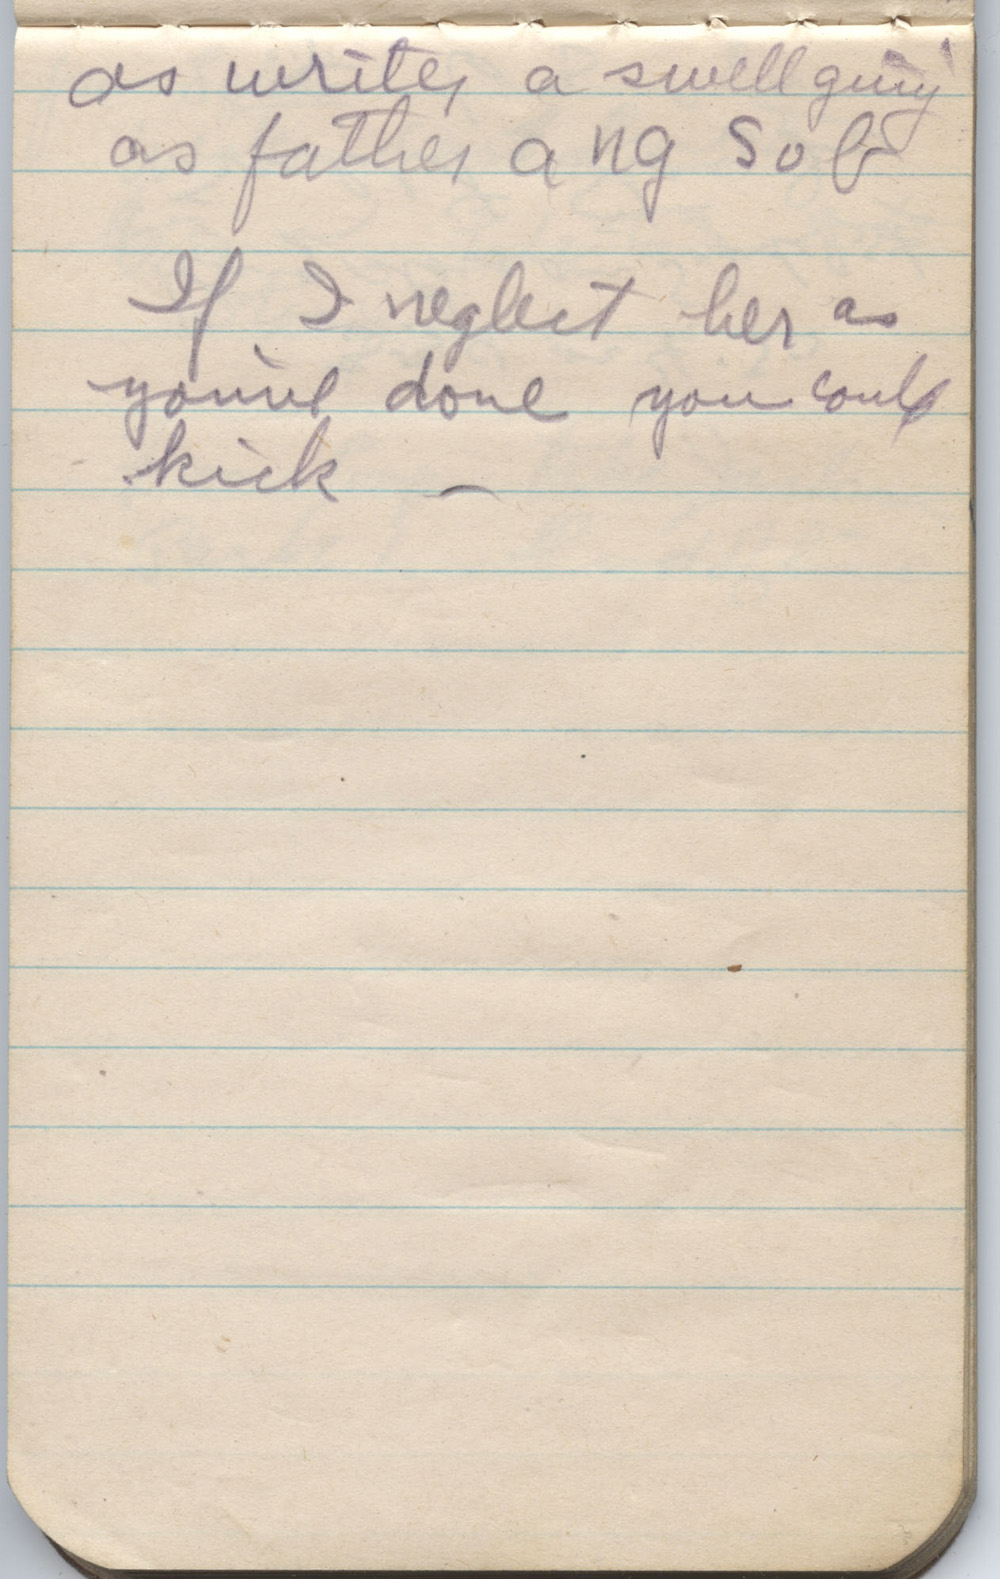 as writer a swell guy
as father a ng S o B
If I neglect her as
you've done you could
kick —